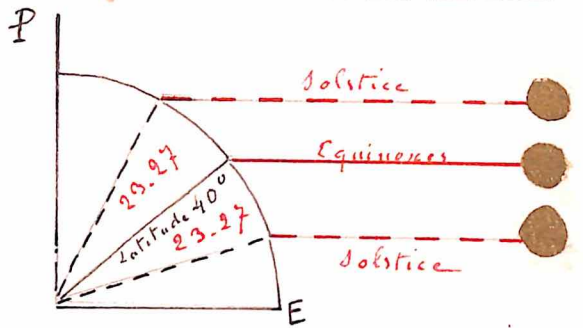 P
Solstice
Equinoxes
23-27
Latitude 40°
23-27
Solstice
E